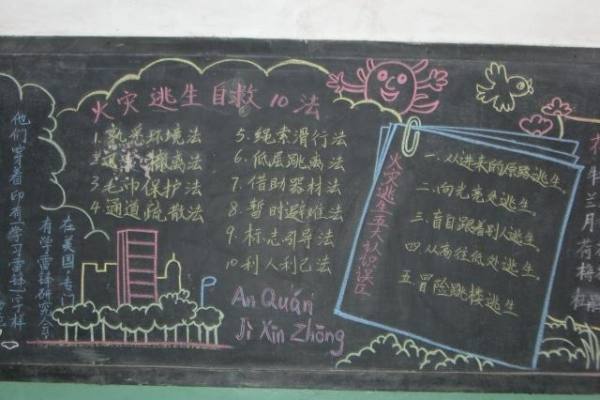 他们穿着印有"学习雷锋"字样
在美国,专门
有学雷锋研究会
火灾逃生自救10法
1.熟悉环境法
撤离法
3.毛巾保护法
4.通道疏散法
5.绳索滑行法
6.低层跳离法
7.借助器材法
8.暂时避难法
9.标志引导法
10.利人利己法
An Quán
Jì Xīn Zhōng
火灾逃生五大认识误区
一.从进来的原路逃生.
二.向光亮处逃生.
三.盲目跟着别人逃生
四从高往低处逃生
五.冒险跳楼逃生